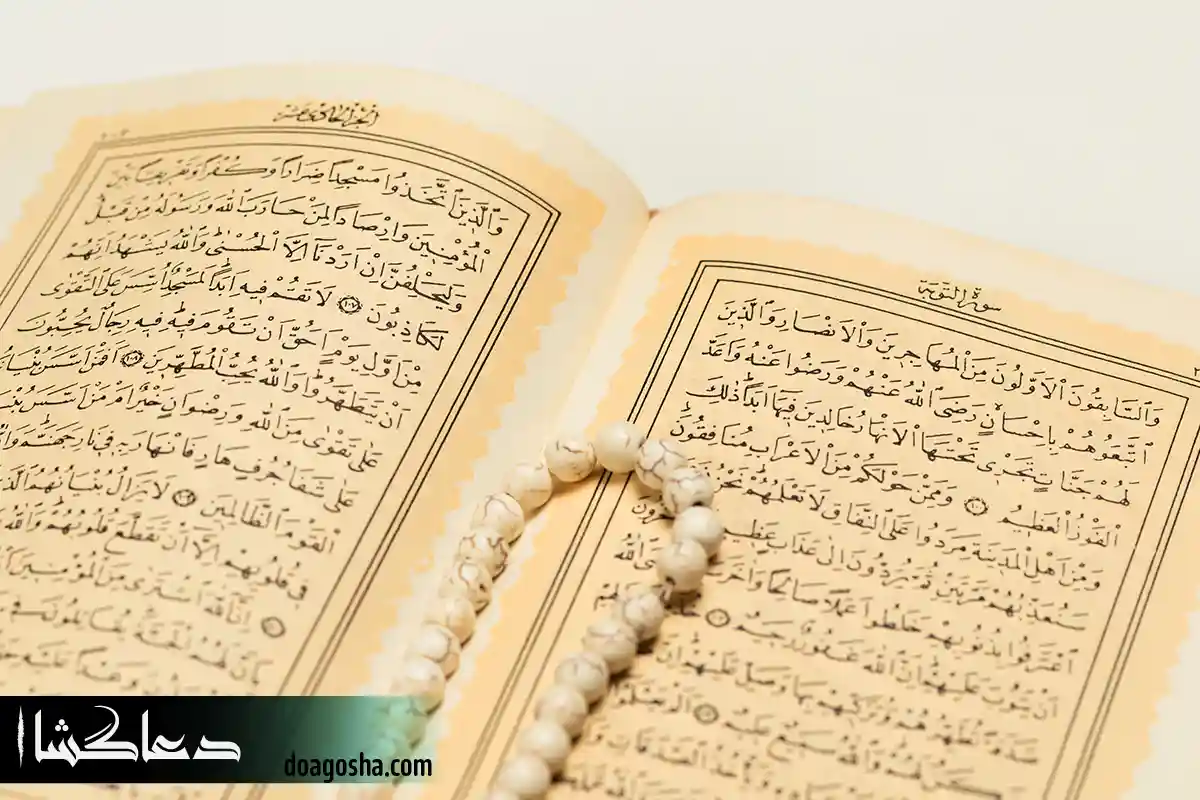 سورة التوبة
وَالسَّابِقُونَ الْاَوَّلُونَ مِنَ الْمُهَاجِرِينَ وَالْاَنْصَارِ وَالَّذِينَ
اتَّبَعُوهُمْ بِاِحْسَانٍ رَضِيَ اللّٰهُ عَنْهُمْ وَرَضُوا عَنْهُ وَاَعَدَّ
لَهُمْ جَنَّاتٍ تَجْرِي تَحْتَهَا الْاَنْهَارُ خَالِدِينَ فِيهَا اَبَدًا ذٰلِكَ
الْفَوْزُ الْعَظِيمُ ١٠٠ وَمِمَّنْ حَوْلَكُمْ مِنَ الْاَعْرَابِ مُنَافِقُونَ
وَمِنْ اَهْلِ الْمَدِينَةِ مَرَدُوا عَلَى النِّفَاقِ لَا تَعْلَمُهُمْ نَحْنُ
سَنُعَذِّبُهُمْ مَرَّتَيْنِ ثُمَّ يُرَدُّونَ اِلٰى عَذَابٍ عَظِيمٍ
اعْتَرَفُوا بِذُنُوبِهِمْ خَلَطُوا عَمَلًا صَالِحًا وَاٰخَرَ اللّٰهُ
اَنْ يَتُوبَ عَلَيْهِمْ اِنَّ اللّٰهَ غَفُورٌ رَحِيمٌ
صَدَقَةً تُطَهِّرُهُمْ وَتُزَكِّيهِمْ بِهَا وَصَلِّ عَلَيْهِمْ اِنَّ
سَكَنٌ لَهُمْ وَاللّٰهُ سَمِيعٌ عَلِيمٌ اَلَمْ يَعْلَمُوا
الجزء الحادي عشر
وَالَّذِينَ اتَّخَذُوا مَسْجِدًا ضِرَارًا وَكُفْرًا وَتَفْرِيقًا بَيْنَ
الْمُؤْمِنِينَ وَاِرْصَادًا لِمَنْ حَارَبَ اللّٰهَ وَرَسُولَهُ مِنْ قَبْلُ
وَلَيَحْلِفُنَّ اِنْ اَرَدْنَا اِلَّا الْحُسْنٰى وَاللّٰهُ يَشْهَدُ اِنَّهُمْ
لَكَاذِبُونَ ١٠٧ لَا تَقُمْ فِيهِ اَبَدًا لَمَسْجِدٌ اُسِّسَ عَلَى التَّقْوٰى
مِنْ اَوَّلِ يَوْمٍ اَحَقُّ اَنْ تَقُومَ فِيهِ فِيهِ رِجَالٌ يُحِبُّونَ
اَنْ يَتَطَهَّرُوا وَاللّٰهُ يُحِبُّ الْمُطَّهِّرِينَ ١٠٨ اَفَمَنْ اَسَّسَ بُنْيَانَهُ
عَلٰى تَقْوٰى مِنَ اللّٰهِ وَرِضْوَانٍ خَيْرٌ اَمْ مَنْ اَسَّسَ
عَلٰى شَفَا جُرُفٍ هَارٍ فَانْهَارَ بِهِ فِي نَارِ جَهَنَّمَ
الْقَوْمَ الظَّالِمِينَ ١٠٩ لَا يَزَالُ بُنْيَانُهُمُ
فِي قُلُوبِهِمْ اِلَّا اَنْ تَقَطَّعَ قُلُوبُهُمْ وَاللّٰهُ
اِنَّ اللّٰهَ اشْتَرٰى مِنَ الْمُؤْمِنِينَ
بِاَنَّ لَهُمُ الْجَنَّةَ يُقَاتِلُونَ فِي
دعاگشا
doagosha.com